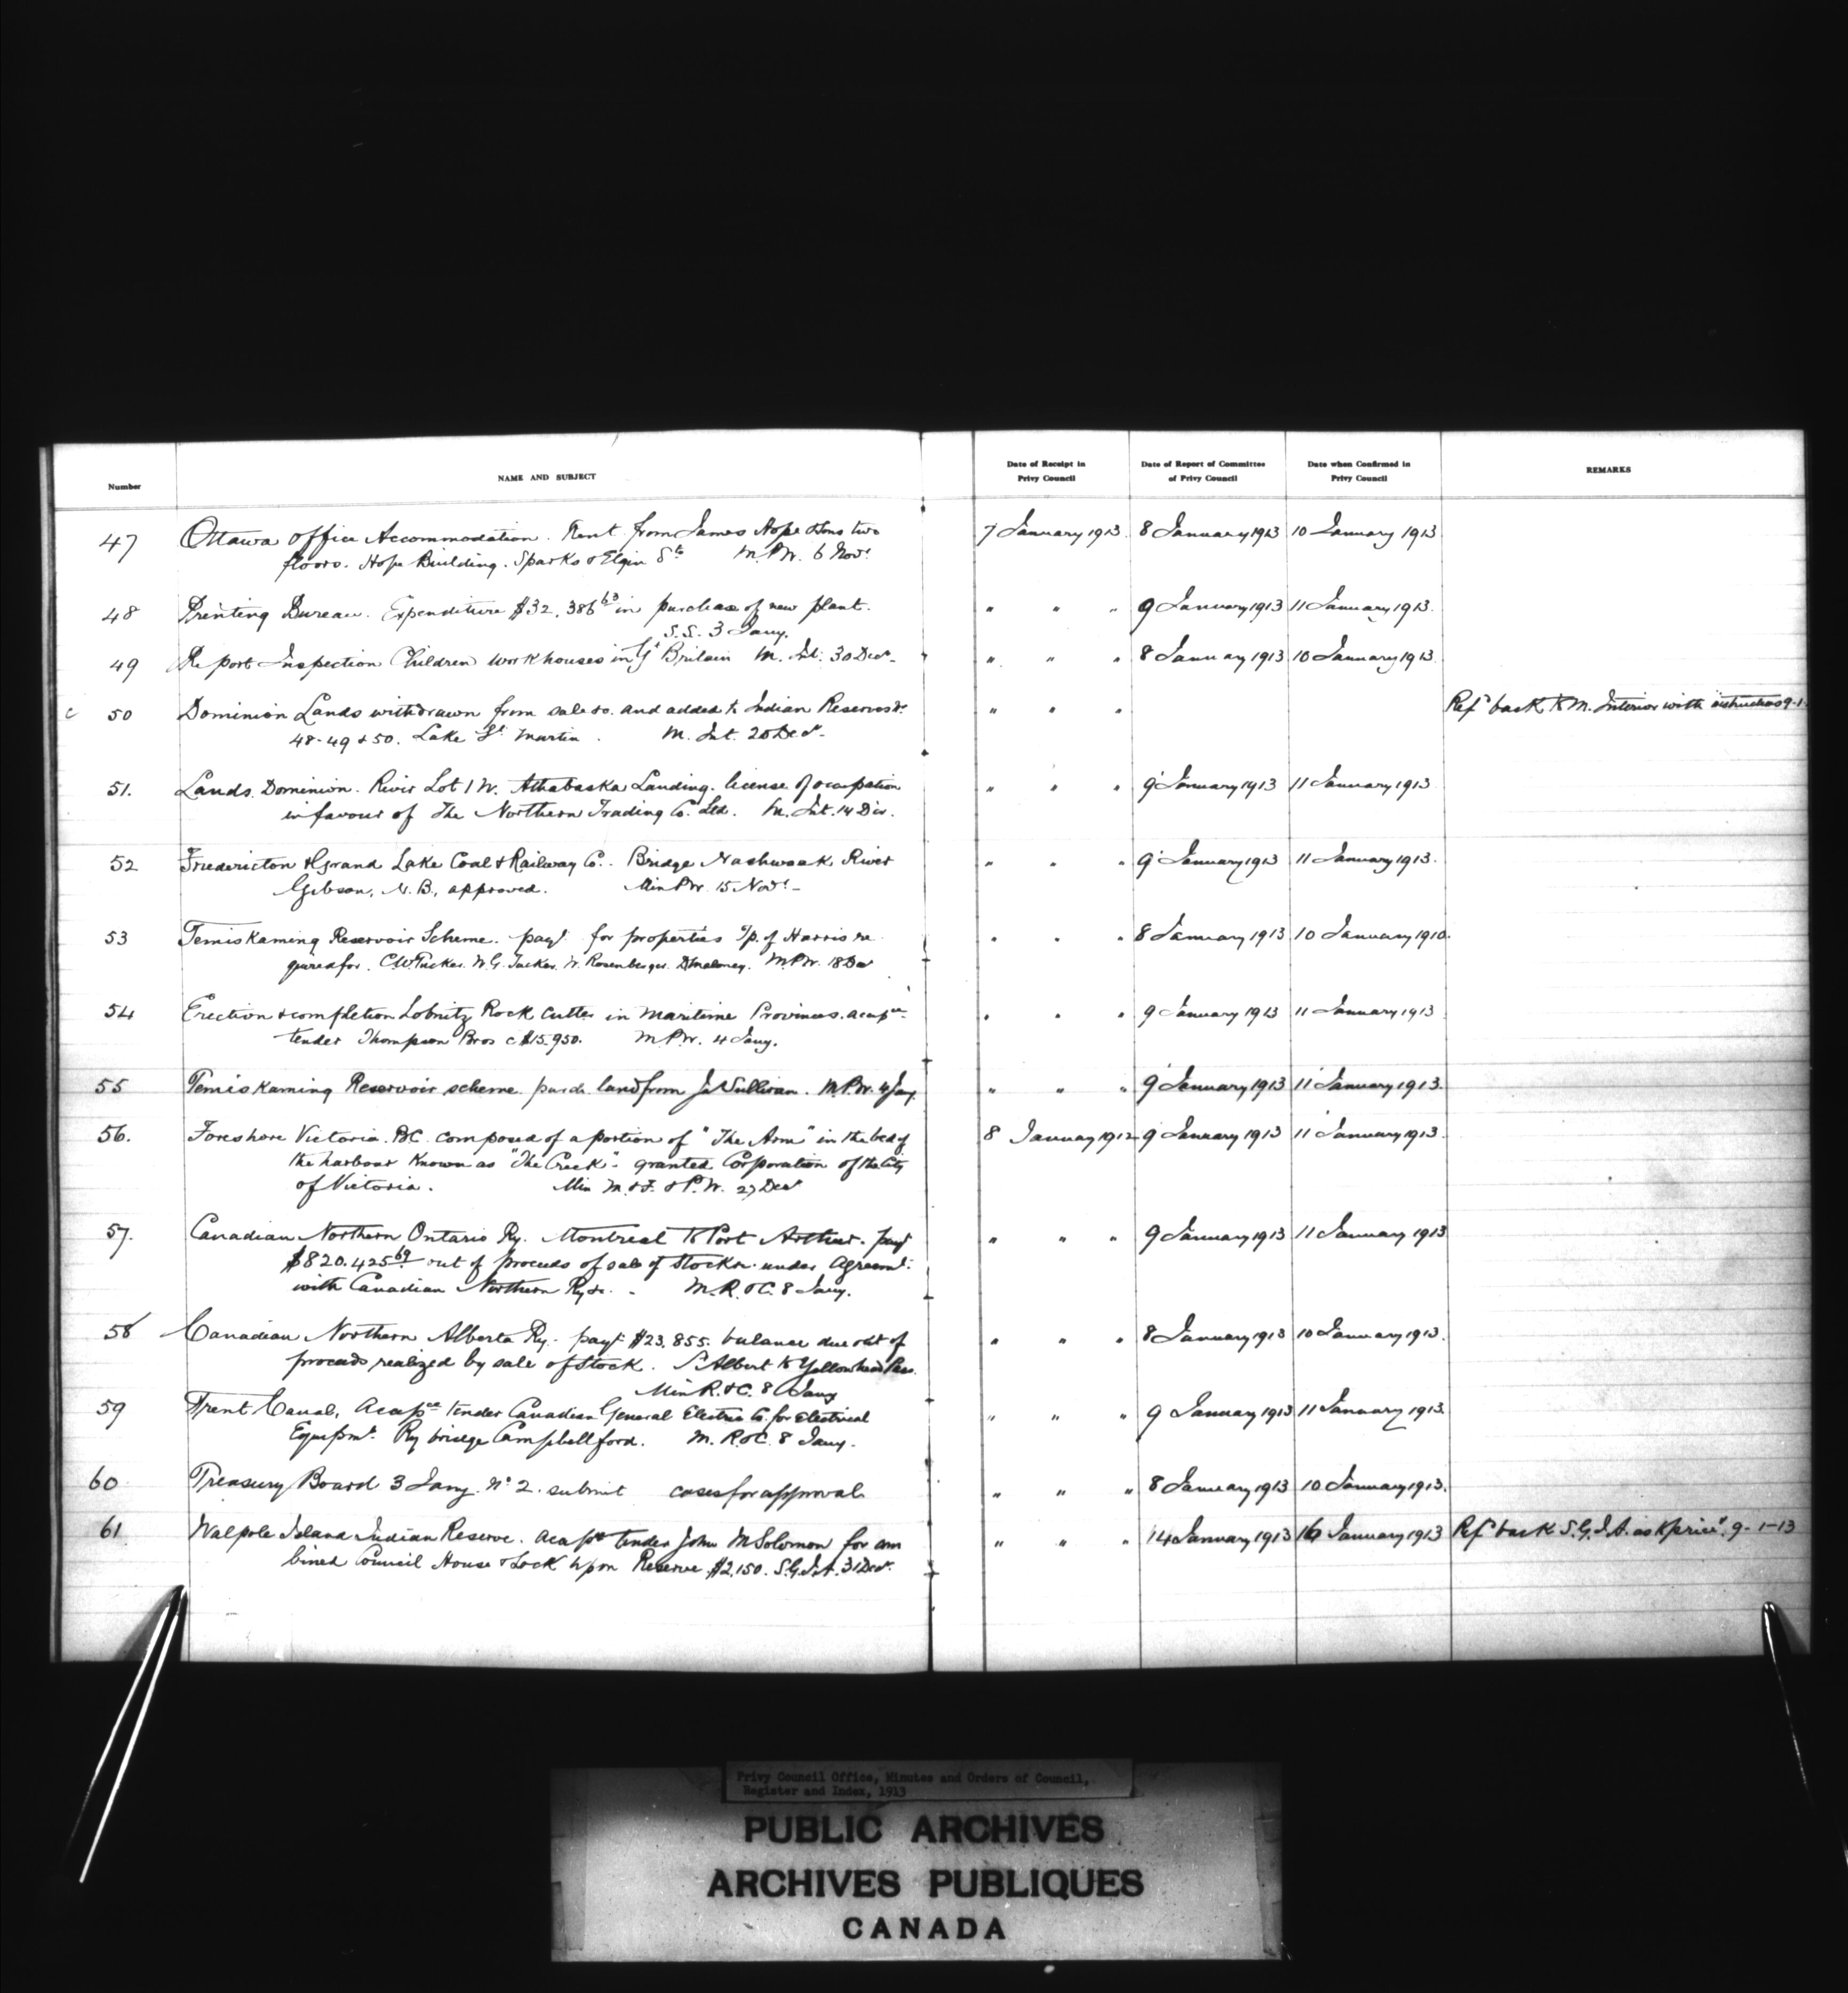 Number NAME AND SUBJECT Date of Receipt in Privy Council Date of Report of Committee of Privy Council Date when Confirmed in Privy Council REMARKS
47 Ottawa Office Accommodation. Rent from James Hope & Sons two 7 January 1913. 8 January 1913 10 January 1913
floors. Hope Building. Sparks & Elgin Sts M.P.W. 6 Novr
48 Printing Bureau. Expenditure $32,386 63 in purchase of new plant. " " " 9 January 1913 11 January 1913.
S.S. 3 Jany.
49 Report Inspection Children workhouses in Gt Britain M. Int. 30 Decr " " " 8 January 1913 10 January 1913
c 50 Dominion Lands withdrawn from sale &c. and added to Indian Reserves " " " Refd back to M. Interior with instructions 9-1
48-49 & 50. Lake St. Martin. M. Int. 20 Decr
51. Lands Dominion. River Lot 1 W. Athabaska Landing. license of occupation " " " 9 January 1913 11 January 1913
in favour of The Northern Trading Co. Ltd. M. Int. 14 Dec.
52 Fredericton & Grand Lake Coal & Railway Co. Bridge Nashwaak River " " " 9 January 1913 11 January 1913.
Gibson, N.B., approved. Min P.W. 15 Novr
53 Temiskaming Reservoir Scheme. payt for properties Tp. of Harris re " " " 8 January 1913 10 January 1910.
quired for. C.W. Tucker. W.G. Tucker. W. Rosenberger. D. Maloney. M.P.W. 18 Dec
54 Erection & completion Lobnitz Rock Cutter in Maritime Provinces. accepce " " " 9 January 1913 11 January 1913
tender Thompson Bros @ $15,950. M.P.W. 4 Jany.
55 Temiskaming Reservoir scheme. purch. land from Js Sullivan. M.P.W. 4 Jany. " " " 9 January 1913 11 January 1913.
56. Foreshore Victoria. B.C. composed of a portion of "The Arm" in the bed of 8 January 1912 9 January 1913 11 January 1913.
the harbour known as "The Creek". granted Corporation of the City
of Victoria. Min M. & F. & P.W. 27 Decr
57. Canadian Northern Ontario Ry. Montreal to Port Arthur. payt " " " 9 January 1913 11 January 1913
$820,425 69 out of proceeds of sale of Stock under Agreemt
with Canadian Northern Ry &c. M.R. & C. 8 Jany.
58 Canadian Northern Alberta Ry. payt $23,855. balance due out of " " " 8 January 1913 10 January 1913.
proceeds realized by sale of Stock. St Albert to Yellowhead Pass.
Min R. & C. 8 Jany
59 Trent Canal, Accepce tender Canadian General Electric Co. for Electrical " " " 9 January 1913 11 January 1913.
Equipmt. Ry bridge Campbellford. M. R. & C. 8 Jany.
60 Treasury Board 3 Jany. No 2. submit cases for approval " " " 8 January 1913 10 January 1913.
61 Walpole Island Indian Reserve. accepce tender John M Solomon for com " " " 14 January 1913 16 January 1913 Refd back S.G.I.A. as to price. 9-1-13
bined Council House & Lock Up on Reserve $2,150. S.G.I.A. 31 Decr.
Privy Council Office, Minutes and Orders of Council,
Register and Index, 1913
PUBLIC ARCHIVES
ARCHIVES PUBLIQUES
CANADA